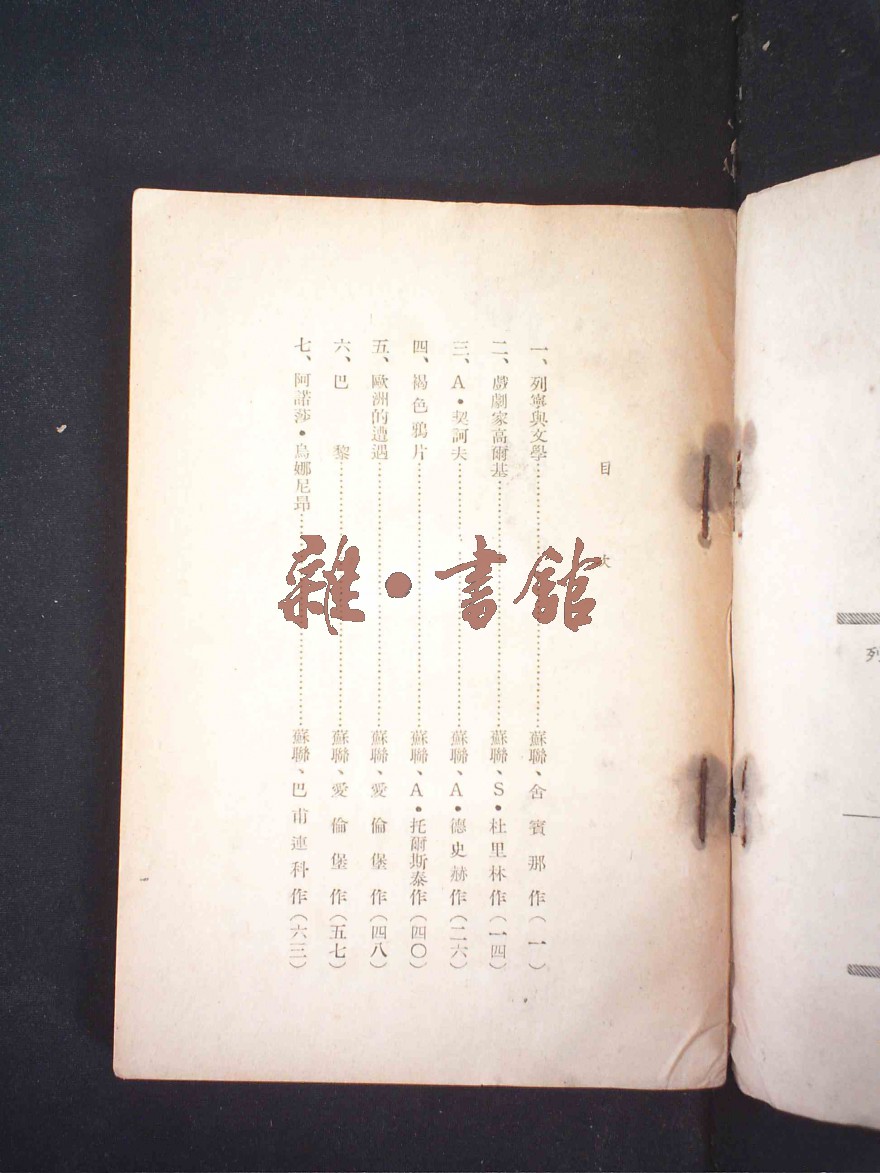 目次
一、列寧與文學……蘇聯、舍賓那作（一）
二、戲劇家高爾基……蘇聯、S・杜里林作（一四）
三、A・契訶夫……蘇聯、A・德史赫作（二六）
四、褐色鴉片……蘇聯、A・托爾斯泰作（四〇）
五、歐洲的遭遇……蘇聯、愛倫堡作（四八）
六、巴黎……蘇聯、愛倫堡作（五七）
七、阿諾莎・烏娜尼昂……蘇聯、巴甫連科作（六三）
雜・書館
列